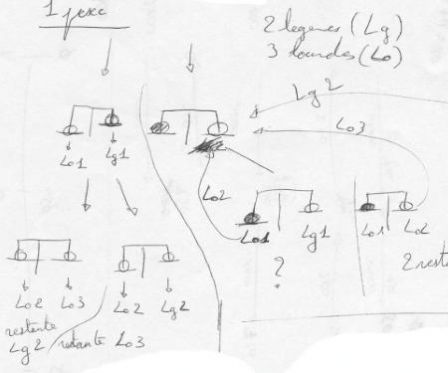 2 legeres (Lg)
3 lourdes (Lo)
Lg 2
Lo3
Lo1 Lg1
Lo2
Lo1 Lg1
Lo1 Lo2
?
2 rest
Lo2 Lo3
Lo2 Lg2
restante
Lg 2
restante Lo3